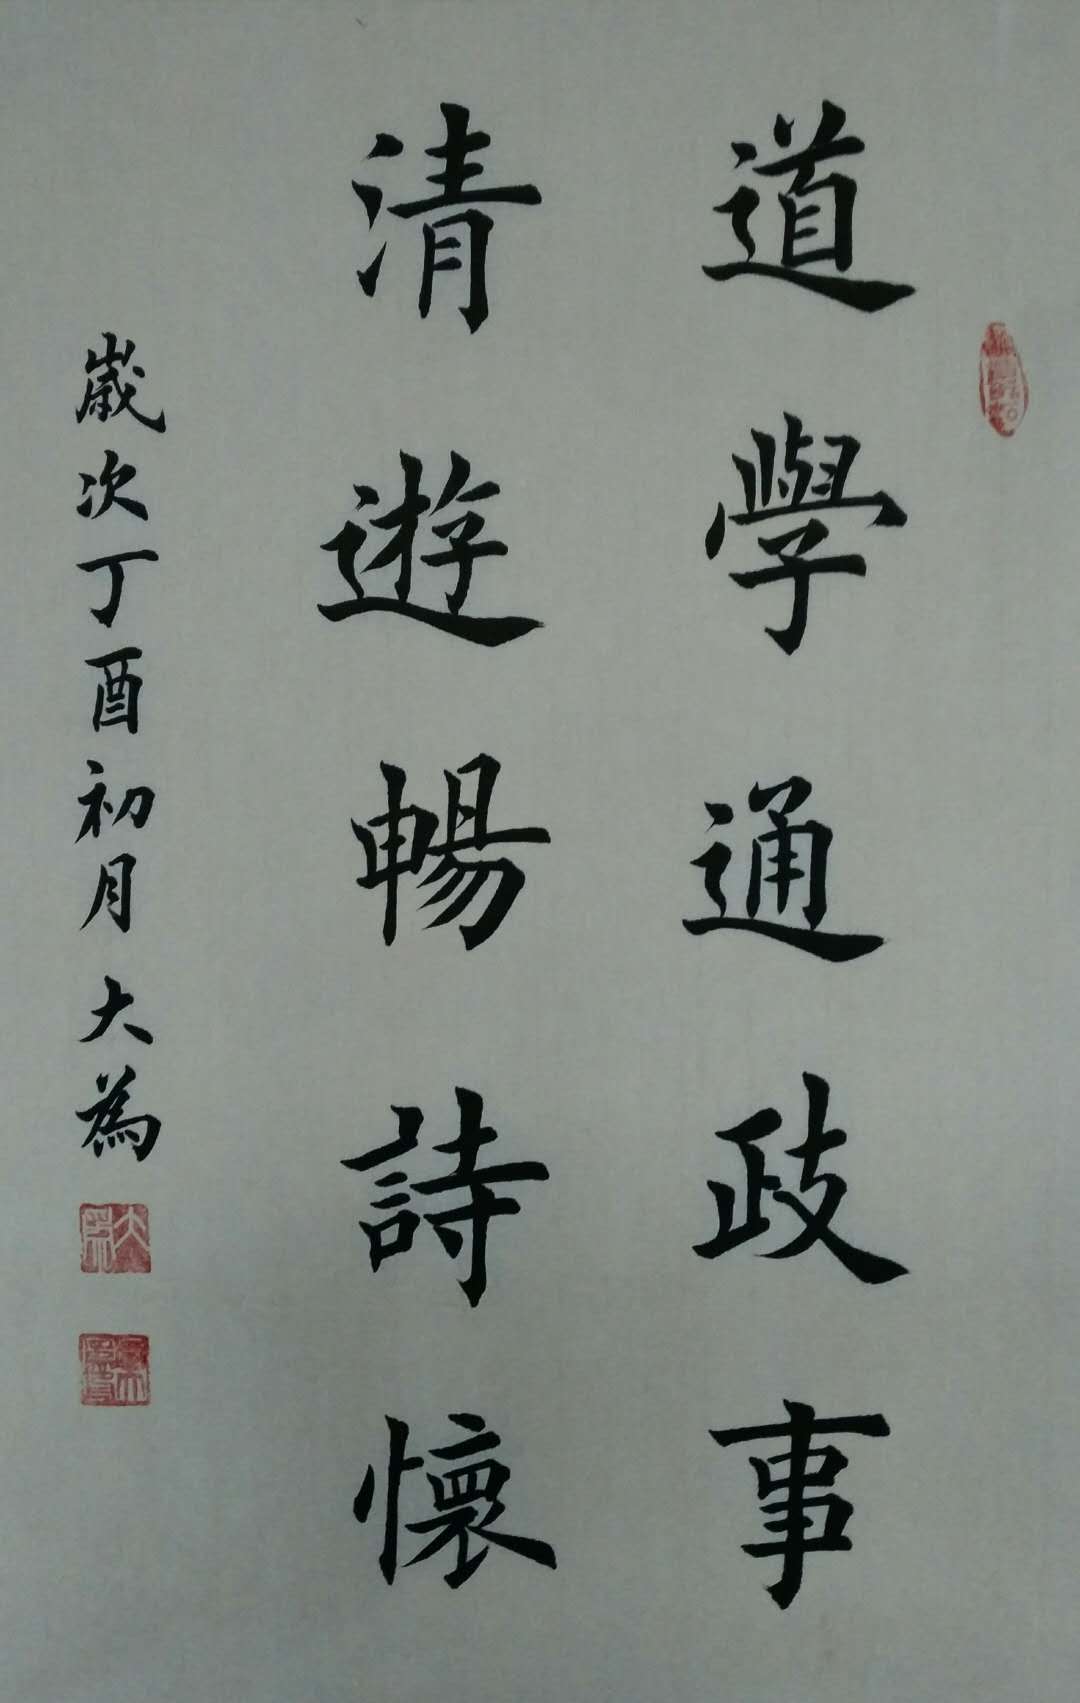 道學通政事
清遊暢詩懷
歲次丁酉初月大為
大為